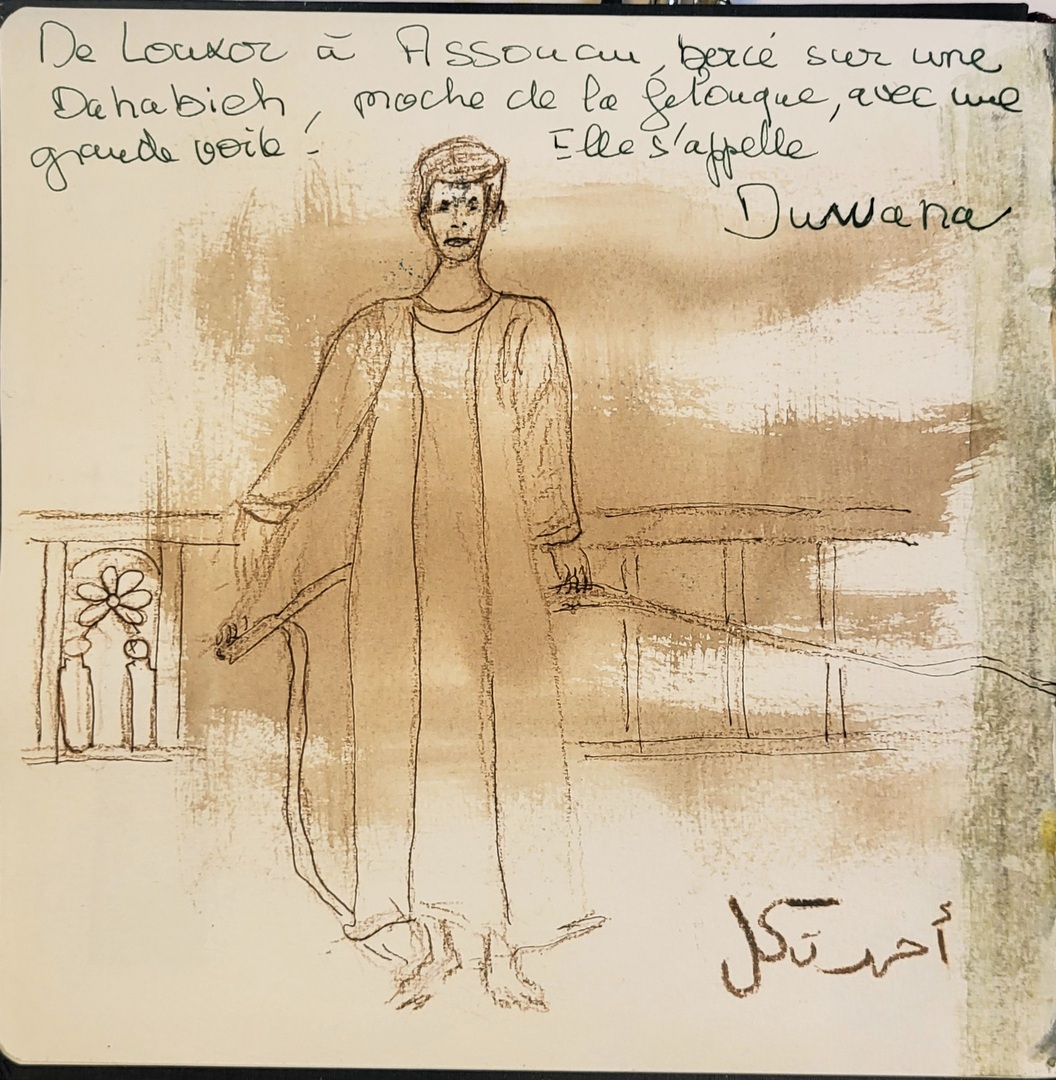 De Louxor à Assouan, bercé sur une
Dahabieh, proche de la félouque, avec une
grande voile ! Elle s'appelle
أحمد تكل